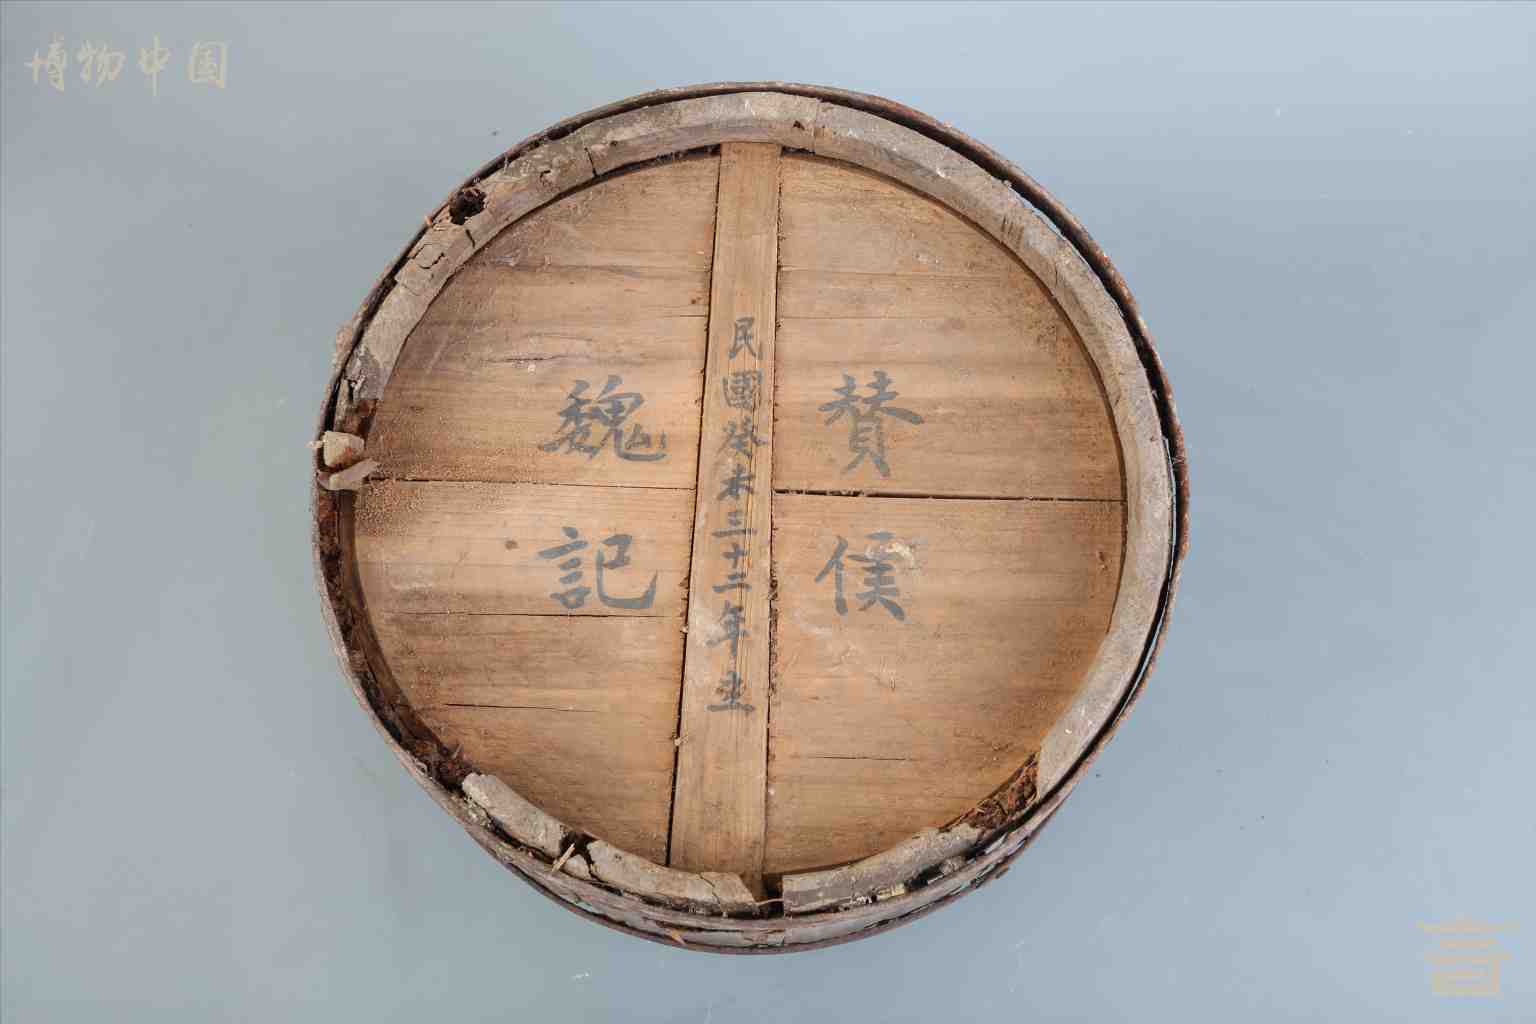 博物中国
賛
民國癸未三十二年
魏記